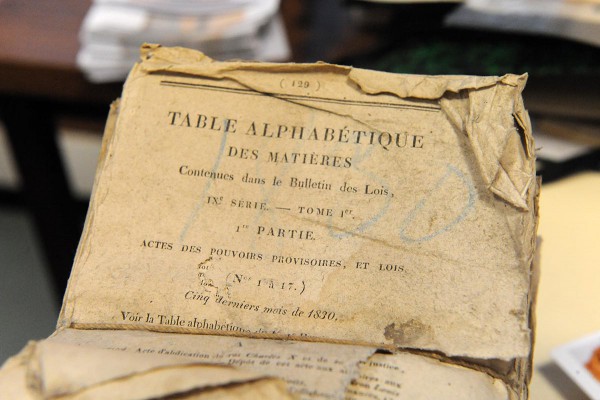 ( 129 )
TABLE ALPHABÉTIQUE
DES MATIÈRES
Contenues dans le Bulletin des Lois,
IXe SÉRIE. — TOME Ier.
1re PARTIE.
ACTES DES POUVOIRS PROVISOIRES, ET LOIS.
(Nos 1 à 17.)
Cinq derniers mois de 1830.
Voir la Table alphabétique
Acte d'abdication du roi Charles X et de
Dépôt de cet acte aux archives